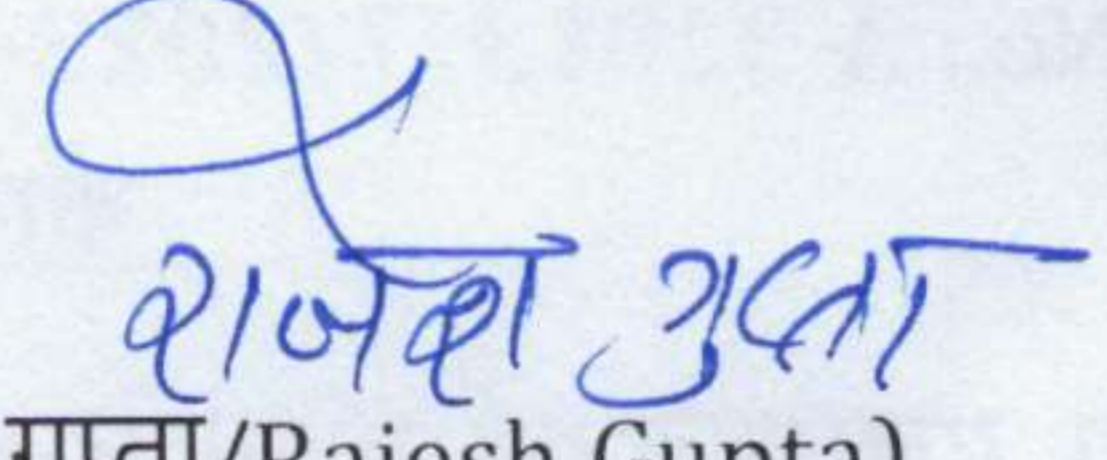 राजेश गुप्ता
गुप्ता/Rajesh Gupta)